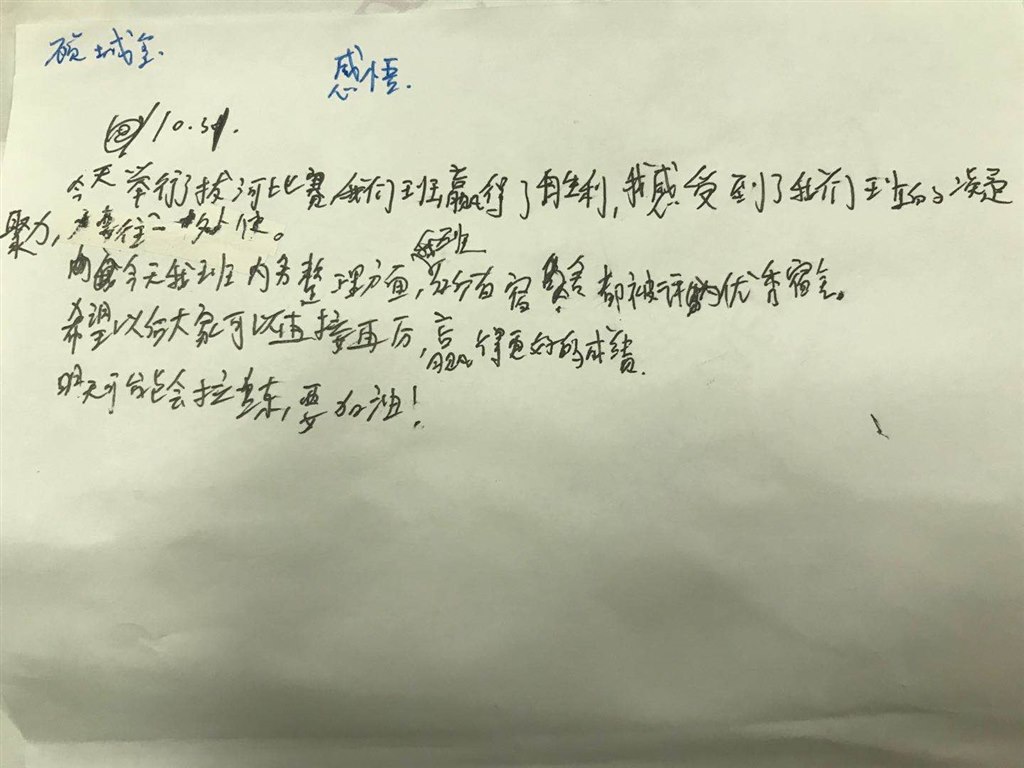 顾城玺
感悟.
10.31.
今天举行了拔河比赛,我们班赢得了胜利,我感受到了我们班的凝
聚力,往一处使。
我班
今天我班内务整理方面,所有宿舍都被评为优秀宿舍。
希望以后大家可以再接再厉,赢得更好的成绩.
明天可能会拉练,要加油!